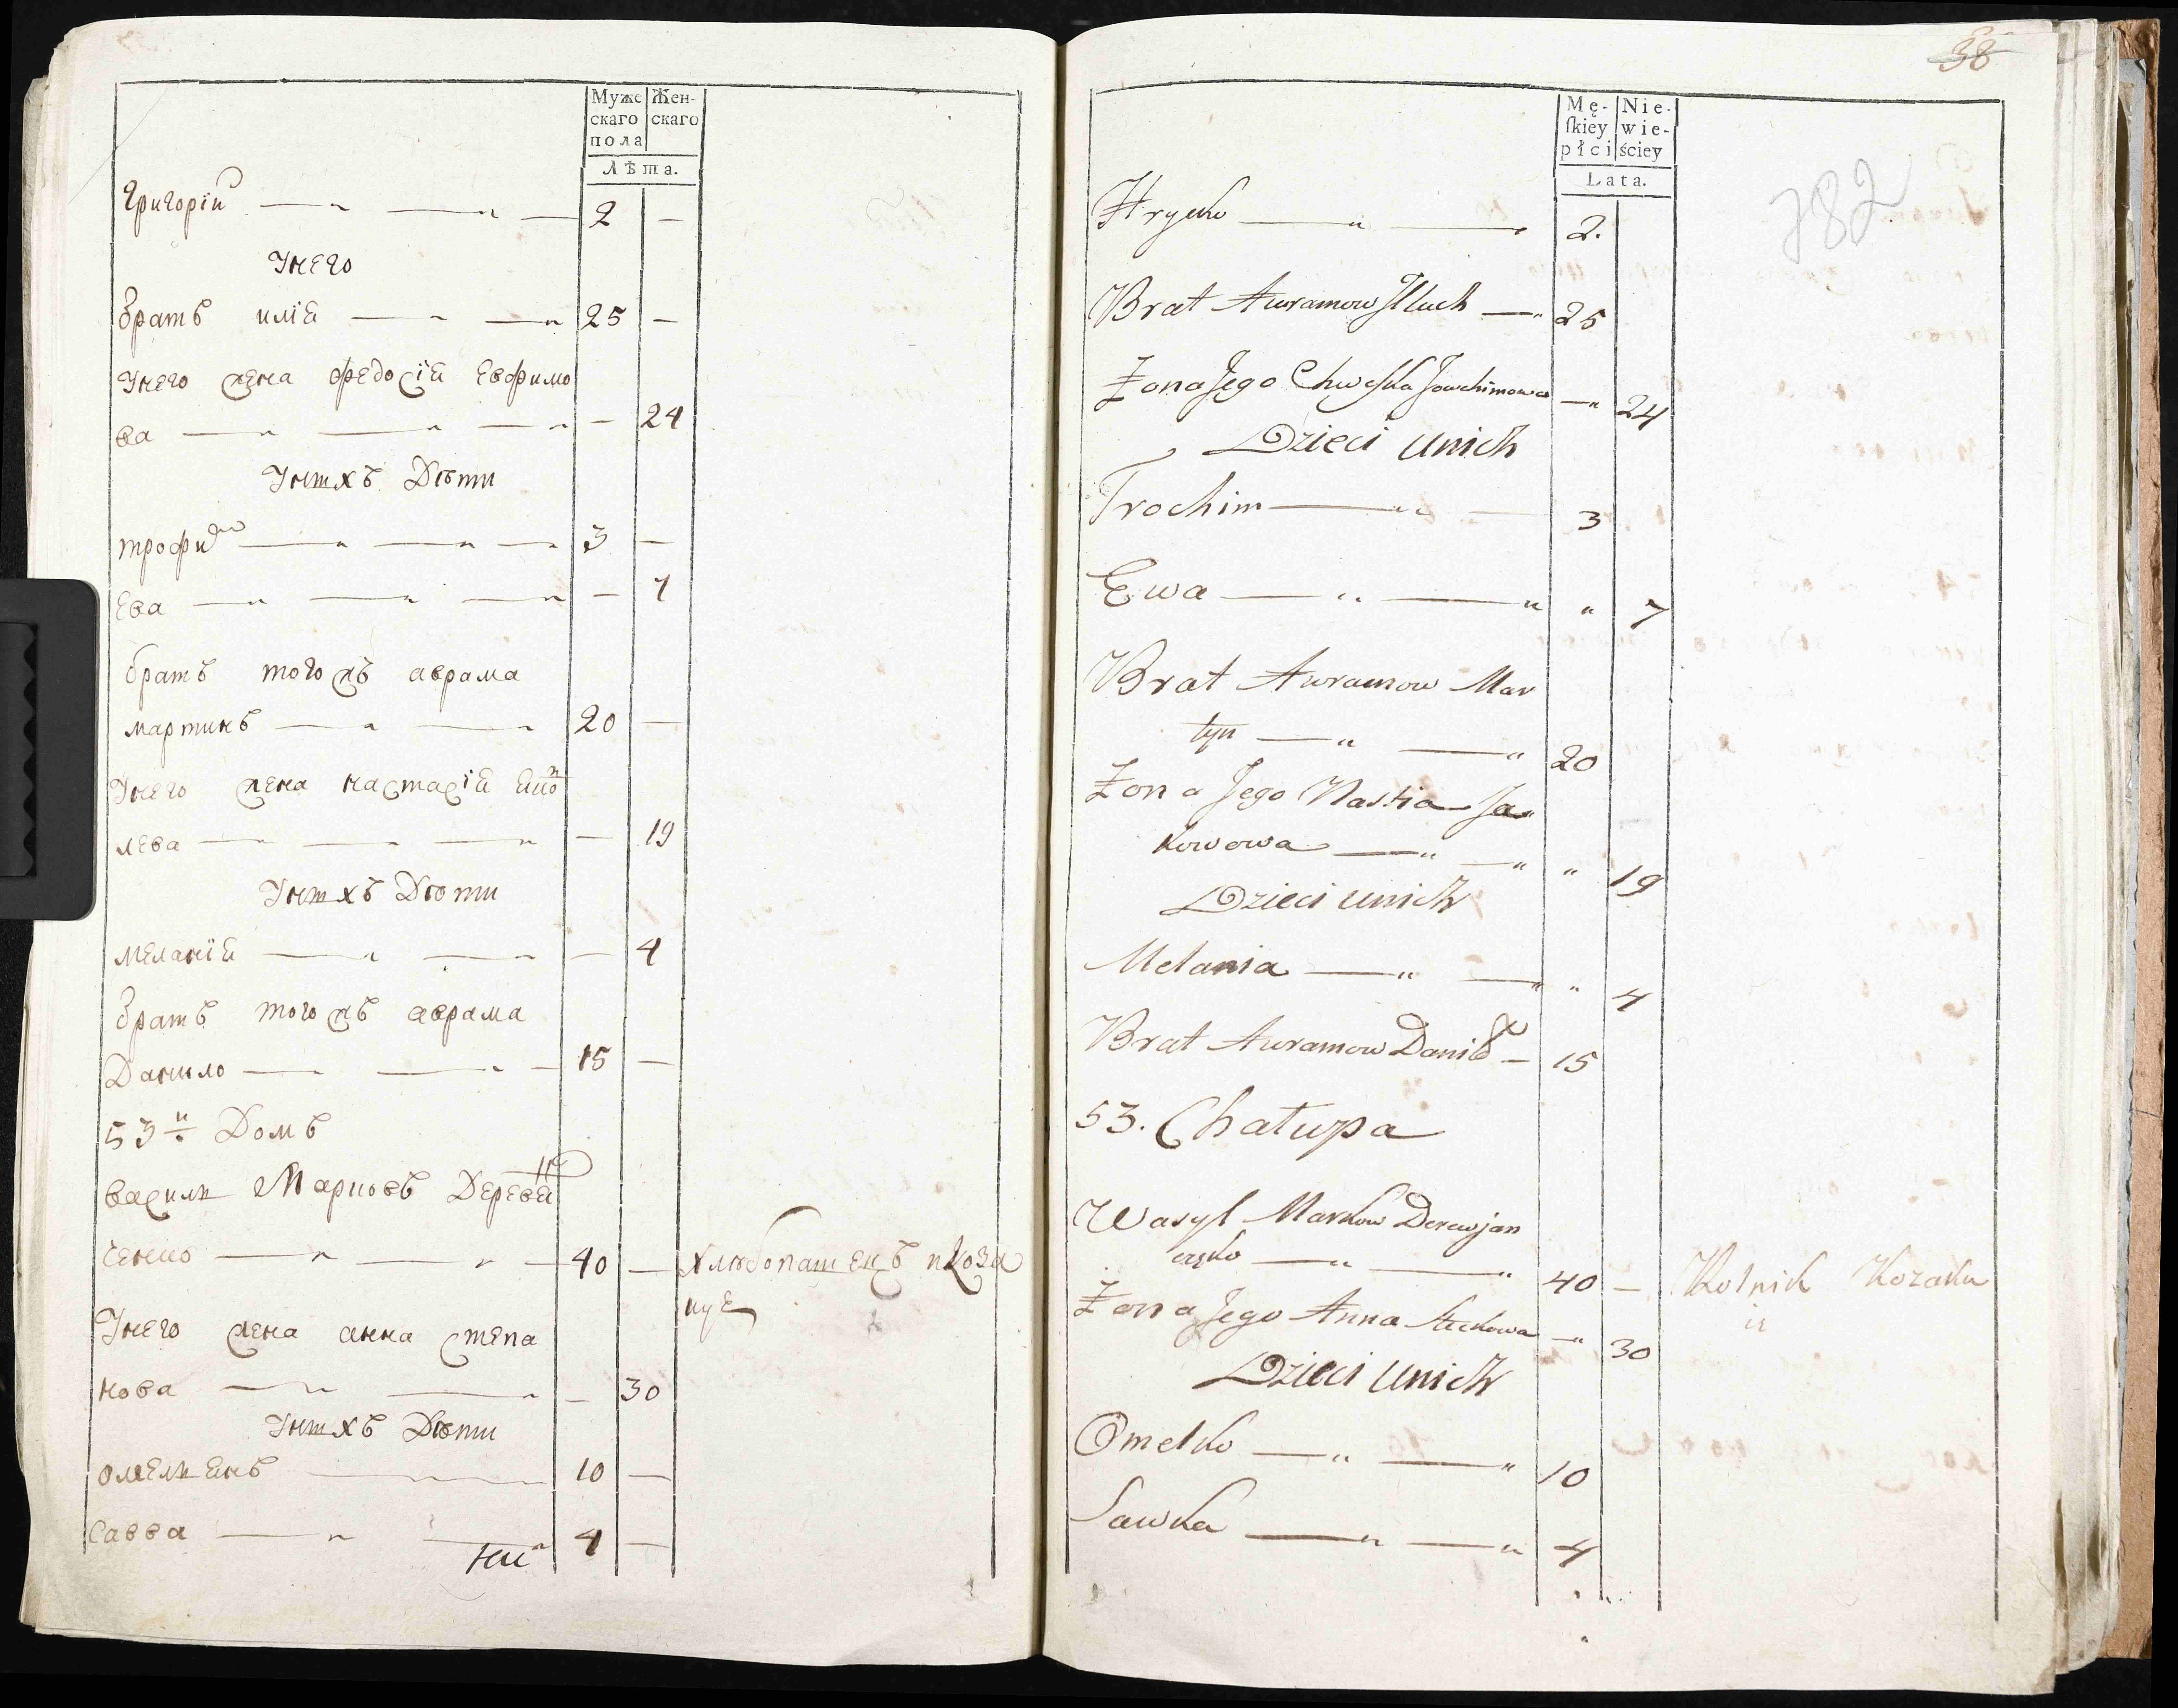 Муже Жен-
скаго скаго
пола
Лѣта.
Григорій — — — 2 —
Унего
Братъ илія — — 25 —
Унего жена федосія Евфимо
ва — — — — 24
Унихъ Дѣти
трофим — — — 3 —
Ева — — — — 7
братъ того жъ аврама
мартинъ — — 20 —
Унего жена настасія Яко
лева — — — — 19
Унихъ Дѣти
меланія — — — 4
Братъ того жъ аврама
Данило — — — 15 —
53й Домъ
василь Марковъ Деревян
ченко — — — 40 — хлѣбопашецъ икоза
куе
Унего жена анна степа
нова — — — 30
Унихъ Дѣти
омельянъ — 10 —
Савва — — 4 —
Ки
38
Mę- Nie-
ſkiéy wie-
płci ściey
Lata.
782
Hryćko — — 2.
Brat Awramow Illuch — 25
Żona Jego Chweśka Jowchimowa — 24
Dzieci unich
Trochim — — 3
Ewa — — " 7
Brat Awramow Mar
tyn — — 20
Żona Jego Nastia Ja
kowowa — — " 19
Dzieci unich
Melania — — " 4
Brat Awramow Daniło — 15
53. Chałupa
Wasyl Markow Derewjan
częko — — 40 — Rolnik Kozaku
ie
Żona Jego Anna Steckowa — 30
Dzieci unich
Omelko — — 10
Sawka — — 4